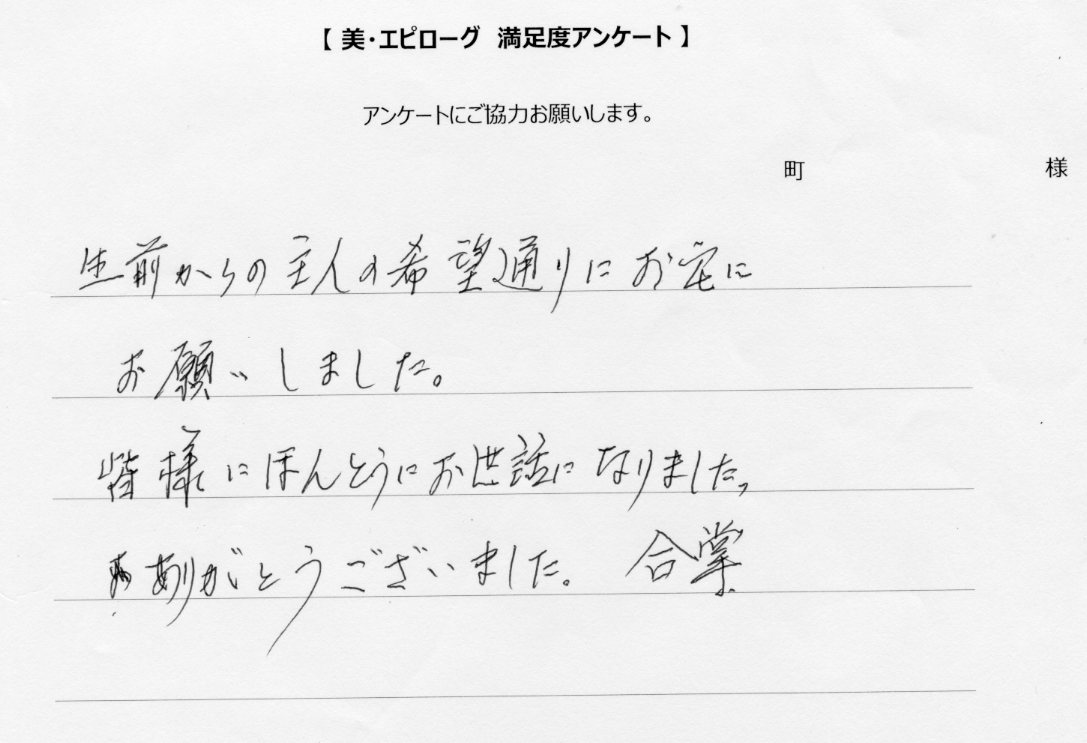 【 美・エピローグ 満足度アンケート 】
アンケートにご協力お願いします。
町 様
生前からの主人の希望通りにお宅に
お願いしました。
皆様にほんとうにお世話になりました、
ありがとうございました。 合掌